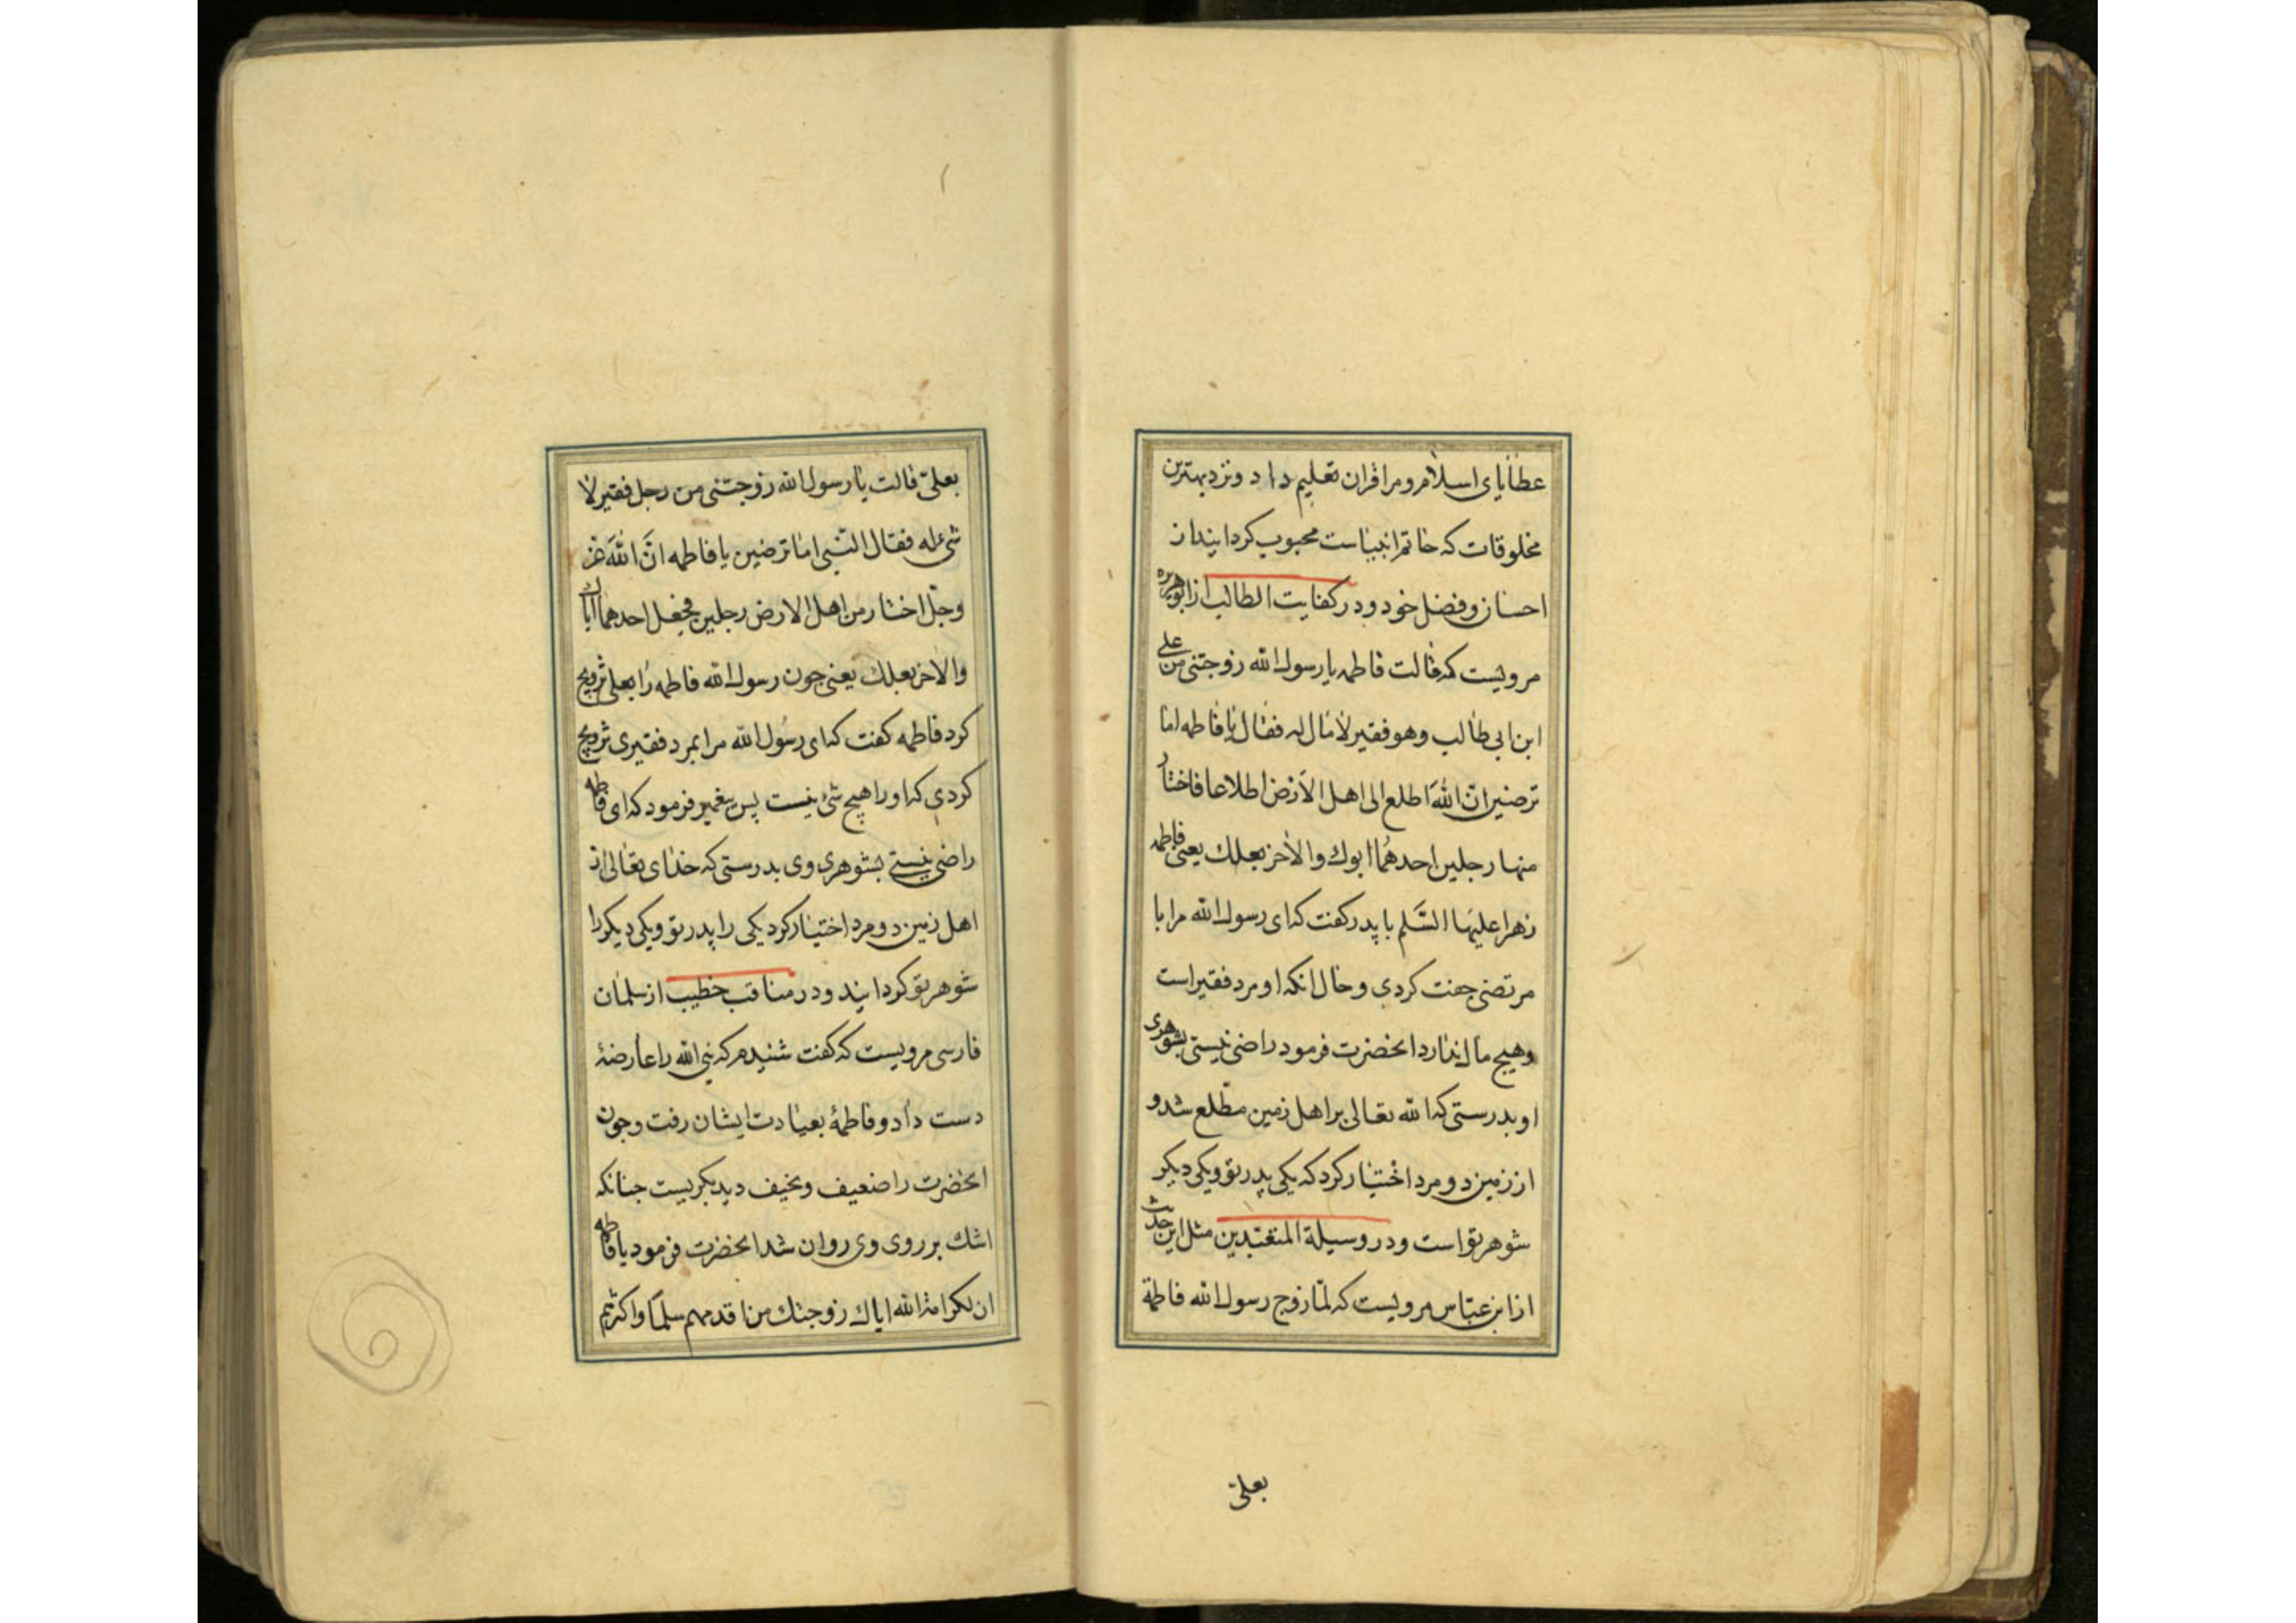 عطایای اسلام و مرا قران تعلیم داد و نزد بهترین
مخلوقات که خاتم انبیاست محبوب کردانید از
احسان و فضل خود و در کفایت الطالب از ابوهریره
مرویست که قالت فاطمه یا رسول الله زوجتنی من علی
ابن ابی طالب و هو فقیر لا مال له فقال یا فاطمه اما
ترضین ان الله اطلع الی اهل الارض اطلاعا فاختار
منها رجلین احدهما ابوک والاخر بعلک یعنی فاطمه
زهرا علیها السلم با پدر کفت که ای رسول الله مرا با
مرتضی جفت کردی و حال انکه او مرد فقیر است
و هیچ مال ندارد انحضرت فرمود راضی نیستی بشوهری
او بدرستی که الله تعالی بر اهل زمین مطلع شد و
از زمین دو مرد اختیار کرد که یکی پدر تو و یکی دیکر
شوهر تو است و در وسیلة المتعبدین مثل این حدیث
از ابن عباس مرویست که لما زوج رسول الله فاطمة
بعلی
بعلی قالت یا رسول الله زوجتنی من رجل فقیر لا
شیء له فقال النبی اما ترضین یا فاطمه ان الله عز
و جل اختار من اهل الارض رجلین فجعل احدهما اباک
والاخر بعلک یعنی جون رسول الله فاطمه را بعلی تزویج
کرد فاطمه کفت که ای رسول الله مرا بمرد فقیری تزویج
کردی که او را هیچ شئ نیست پس پیغمبر فرمود که ای فاطمه
راضی نیستی بشوهری وی بدرستی که خدای تعالی از
اهل زمین دو مرد اختیار کرد یکی را پدر تو و یکی دیکر را
شوهر تو کردانید و در مناقب خطیب از سلمان
فارسی مرویست که کفت شنیدم که نبی الله را عارضهٔ
دست داد و فاطمهٔ بعیادت ایشان رفت و جون
انحضرت را ضعیف و نحیف دید بکریست جنانکه
اشک بر روی وی روان شد انحضرت فرمود یا فاطمه
ان لکرامة الله ایاک زوجتک من اقدمهم سلما و اکثرهم